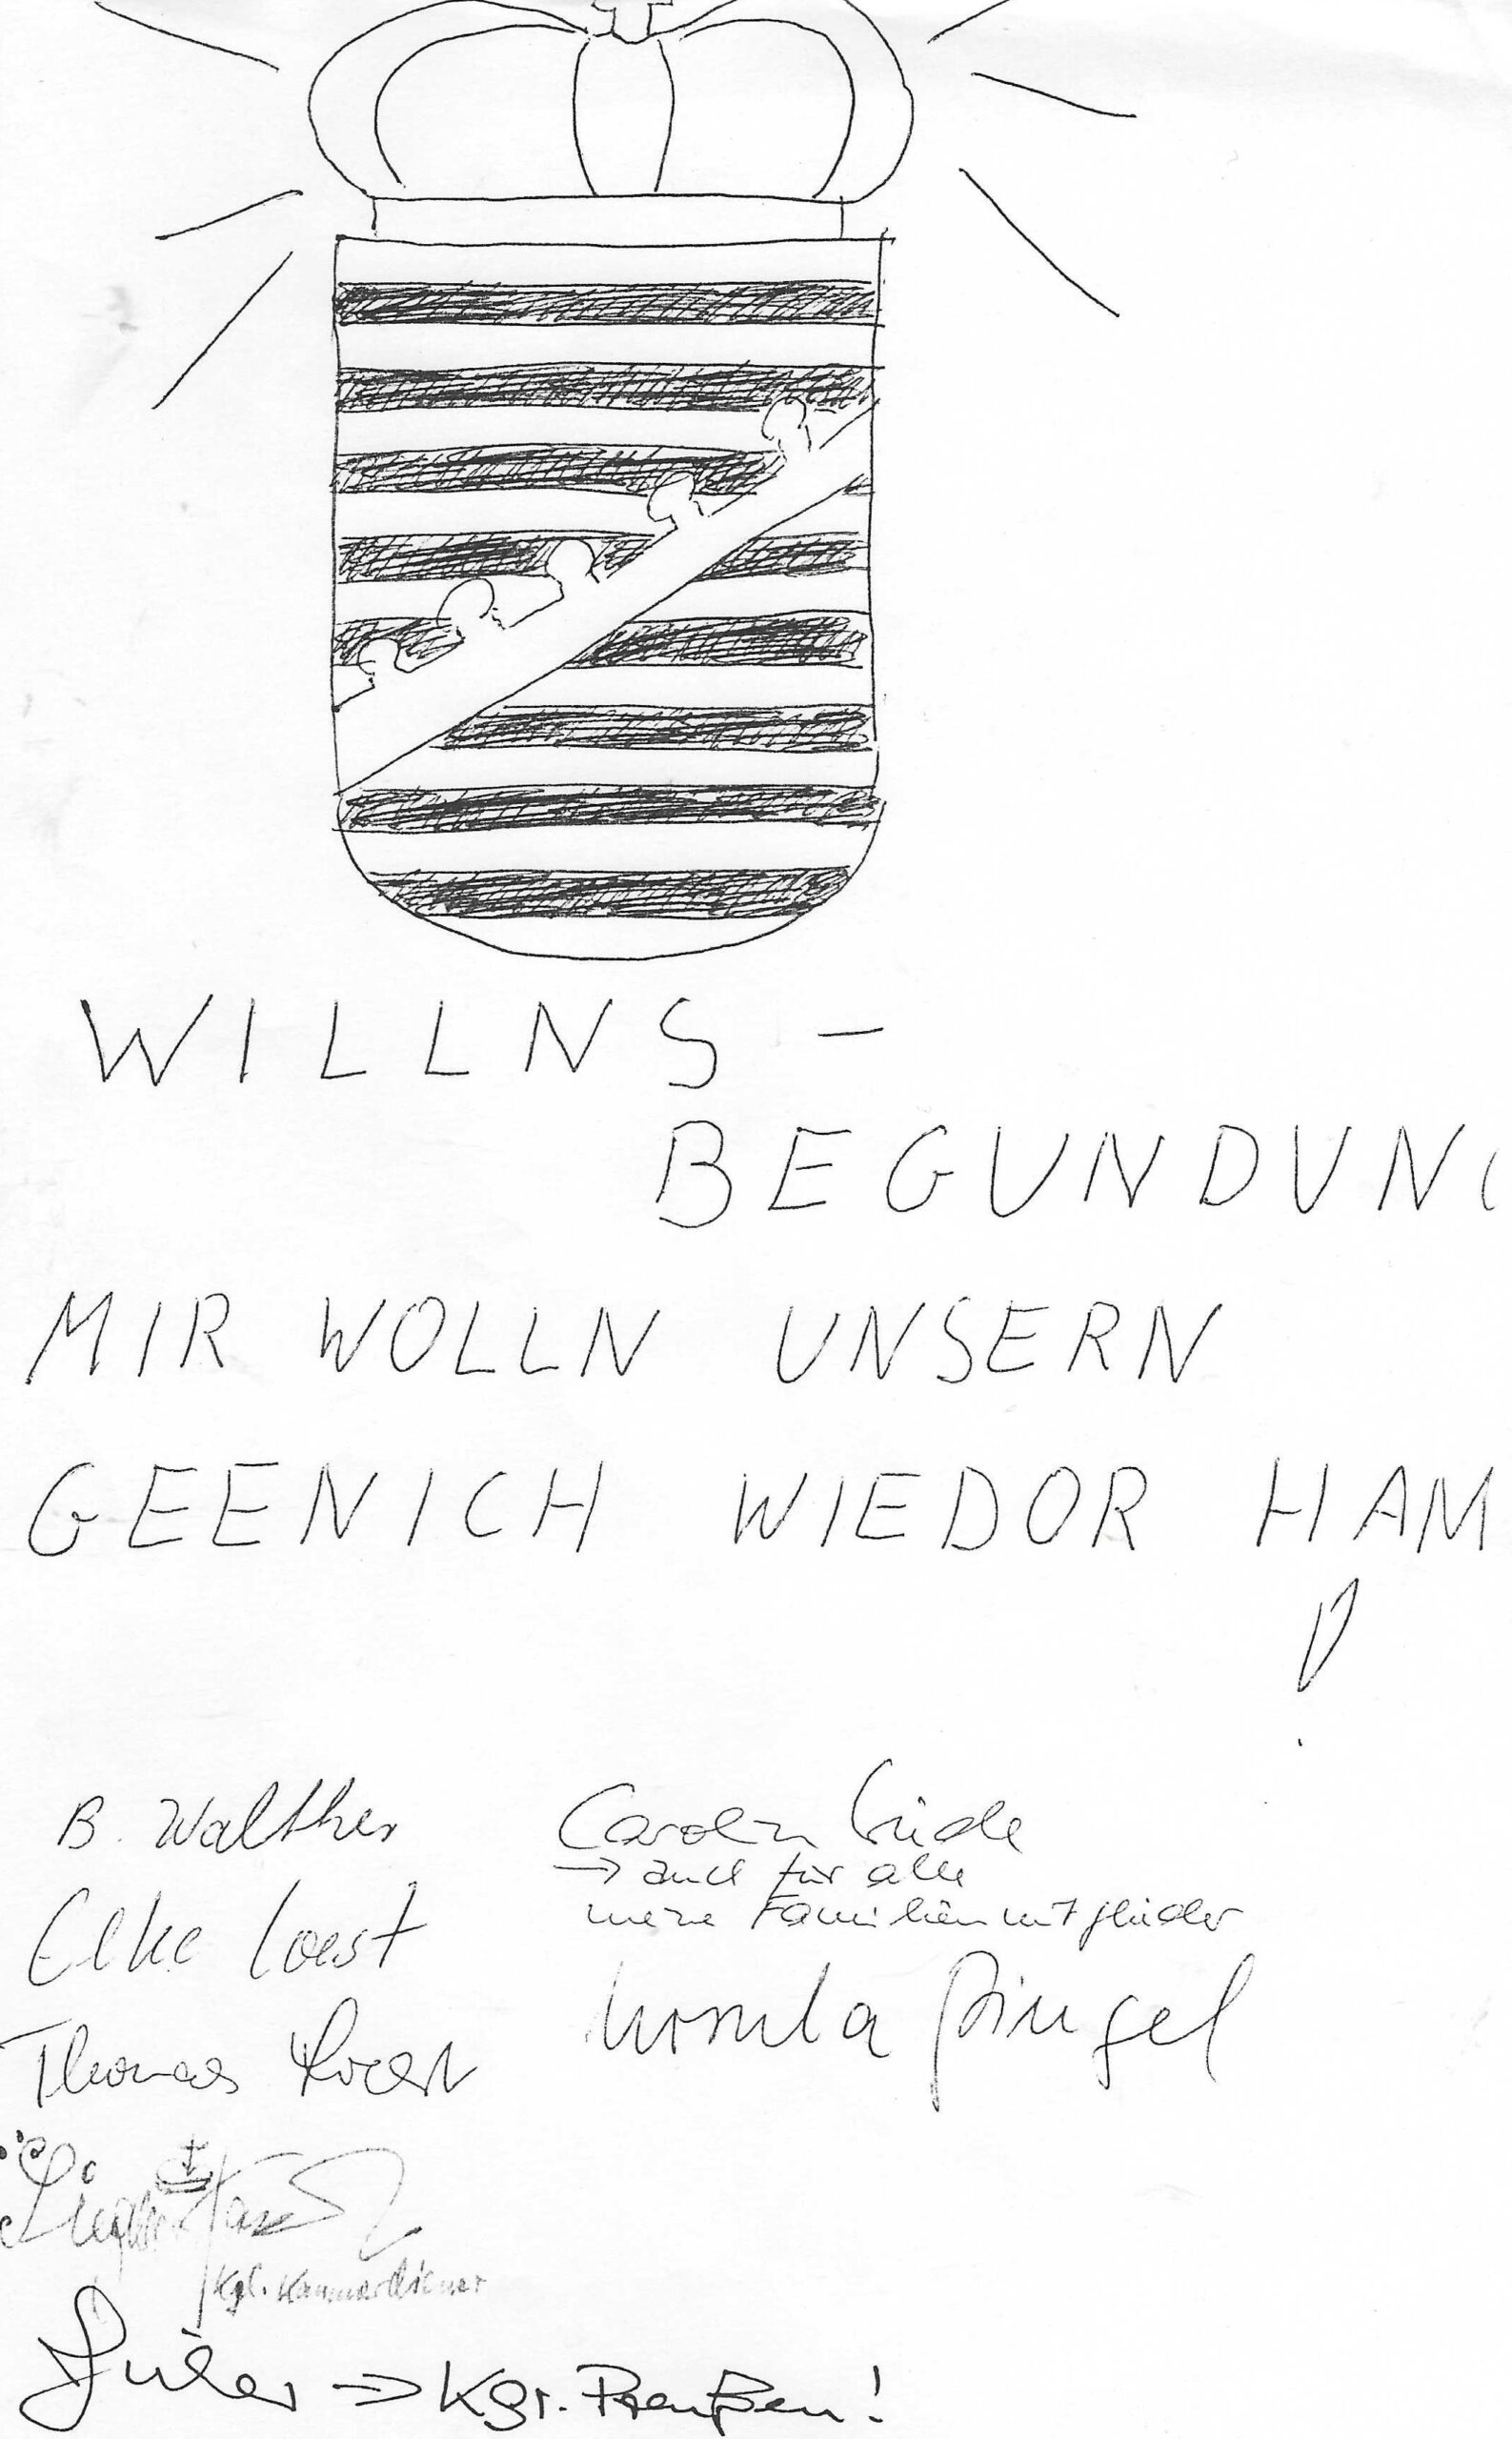 WILLNS -
BEGUNDUN
MIR WOLLN UNSERN
GEENICH WIEDOR HAM
!
B. Walther
Carolin
→ auch für alle
meine Familienmitglieder
Elke Loest
Ursula Pingel
Thomas Loest
Kgl. Kammerdiener
→ Kgr. Preußen!